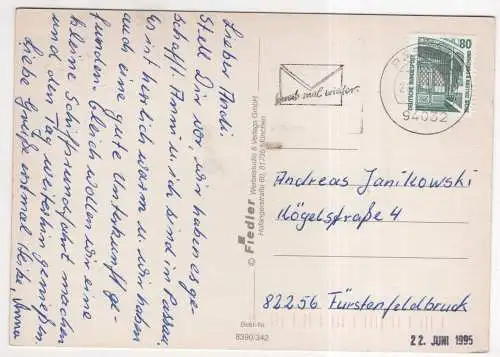 Lieber Andi
Stell Dir vor, wir haben es ge-
schafft. Anni u. ich sind in Passau.
Es ist herrlich warm u. wir haben
auch eine gute Unterkunft ge-
funden. Gleich wollen wir eine
kleine Schiffrundfahrt machen
und den Tag weiterhin genießen.
Liebe Grüße einmal Heike, Anna
© Fiedler Werbestudio & Verlags GmbH
Hofangerstraße 60, 81735 München
Best-Nr.
8390/342
Schreib mal wieder.
94032
80
DEUTSCHE BUNDESPOST
Andreas Janikowski
Kögelstraße 4
82256 Fürstenfeldbruck
22. JUNI 1995